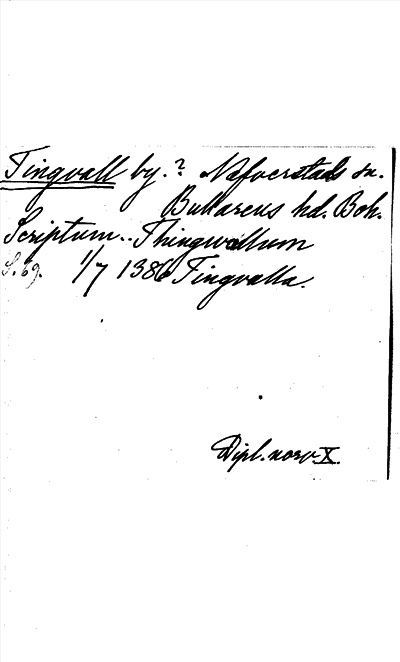 Tingvall by.? Nafverstads sn.
Bullarens hd. Boh.
Scriptum.. Thingwallum
S. 69. 1/7 1386 Tingvalla.
Dipl. norv X.